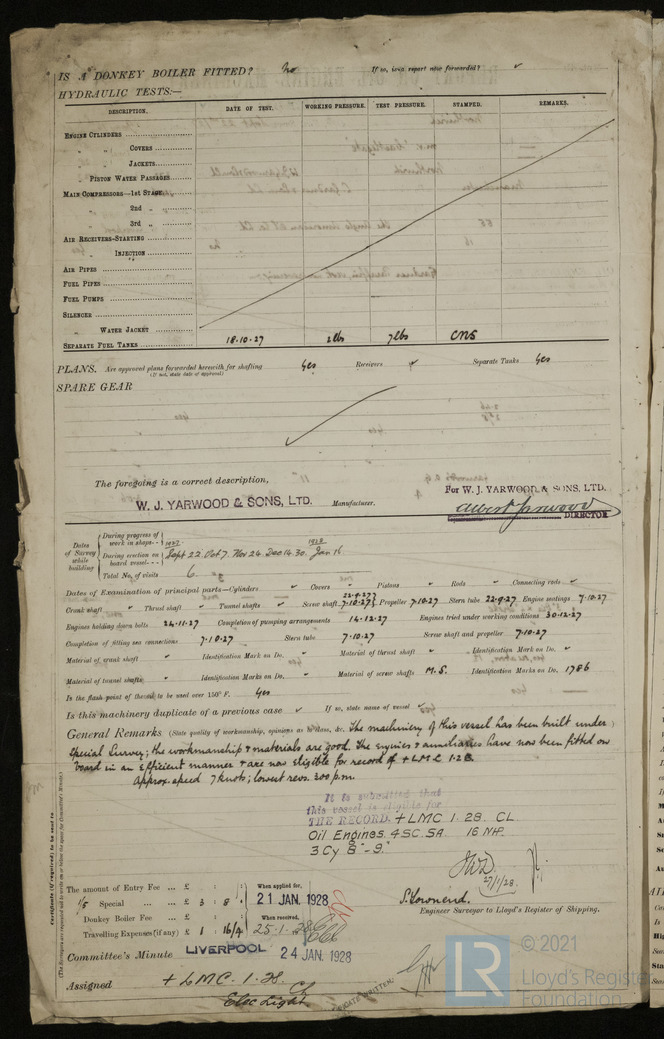 IS A DONKEY BOILER FITTED? No If so, is a report now forwarded? ✓
HYDRAULIC TESTS:—
DESCRIPTION. DATE OF TEST. WORKING PRESSURE. TEST PRESSURE. STAMPED. REMARKS.
ENGINE CYLINDERS
" " COVERS
" " JACKETS
" PISTON WATER PASSAGES
MAIN COMPRESSORS—1st STAGE
2nd "
3rd "
AIR RECEIVERS—STARTING
INJECTION
AIR PIPES
FUEL PIPES
FUEL PUMPS
SILENCER
" WATER JACKET
SEPARATE FUEL TANKS 18.10.27 2 lbs 7 lbs CNS
PLANS. Are approved plans forwarded herewith for shafting Yes Receivers ✓ Separate Tanks Yes
(If not, state date of approval)
SPARE GEAR
The foregoing is a correct description,
W. J. YARWOOD & SONS, LTD. Manufacturer.
For W. J. YARWOOD & SONS, LTD.
DIRECTOR
Dates of Survey while building
During progress of work in shops - - 1927 1928
During erection on board vessel - - Sept 22. Oct 7. Nov 24. Dec 14. 30. Jan 16
Total No. of visits 6.
Dates of Examination of principal parts—Cylinders ✓ Covers ✓ Pistons ✓ Rods ✓ Connecting rods ✓
Crank shaft ✓ Thrust shaft ✓ Tunnel shafts ✓ Screw shaft 22-9-27 7-10-27 Propeller 7-10-27 Stern tube 22-9-27 Engine seatings 7.10.27
Engines holding down bolts 24-11-27 Completion of pumping arrangements 14-12-27 Engines tried under working conditions 30-12-27
Completion of fitting sea connections 7-10-27 Stern tube 7-10-27 Screw shaft and propeller 7-10-27
Material of crank shaft ✓ Identification Mark on Do. ✓ Material of thrust shaft ✓ Identification Mark on Do. ✓
Material of tunnel shafts ✓ Identification Marks on Do. ✓ Material of screw shafts M.S. Identification Marks on Do. 1786
Is the flash point of the oil to be used over 150° F. Yes
Is this machinery duplicate of a previous case ✓ If so, state name of vessel ✓
General Remarks (State quality of workmanship, opinions as to class, &c. The machinery of this vessel has been built under
Special Survey; the workmanship & materials are good. The engines & auxiliaries have now been fitted on
board in an efficient manner & are now eligible for record of +LMC 1.28.
Approx speed 7 knots; lowest revs. 300 p.m.
It is submitted that
this vessel is eligible for
THE RECORD. + LMC 1.28. CL
Oil Engines 4SC.SA 16 NHP.
3 Cy 8" - 9"
27/1/28.
Certificate (if required) to be sent to
The amount of Entry Fee ... £ : : When applied for,
1/5 Special ... £ 3 : 8 : 21 JAN 1928
Donkey Boiler Fee ... £ : : When received,
Travelling Expenses (if any) £ 1 : 16/4 25.1.28
S. Townend.
Engineer Surveyor to Lloyd's Register of Shipping.
Committee's Minute LIVERPOOL 24 JAN 1928
Assigned + LMC. 1.28. CL
Elec Light
CERTIFICATE WRITTEN.
LR
© 2021
Lloyd's Register
Foundation